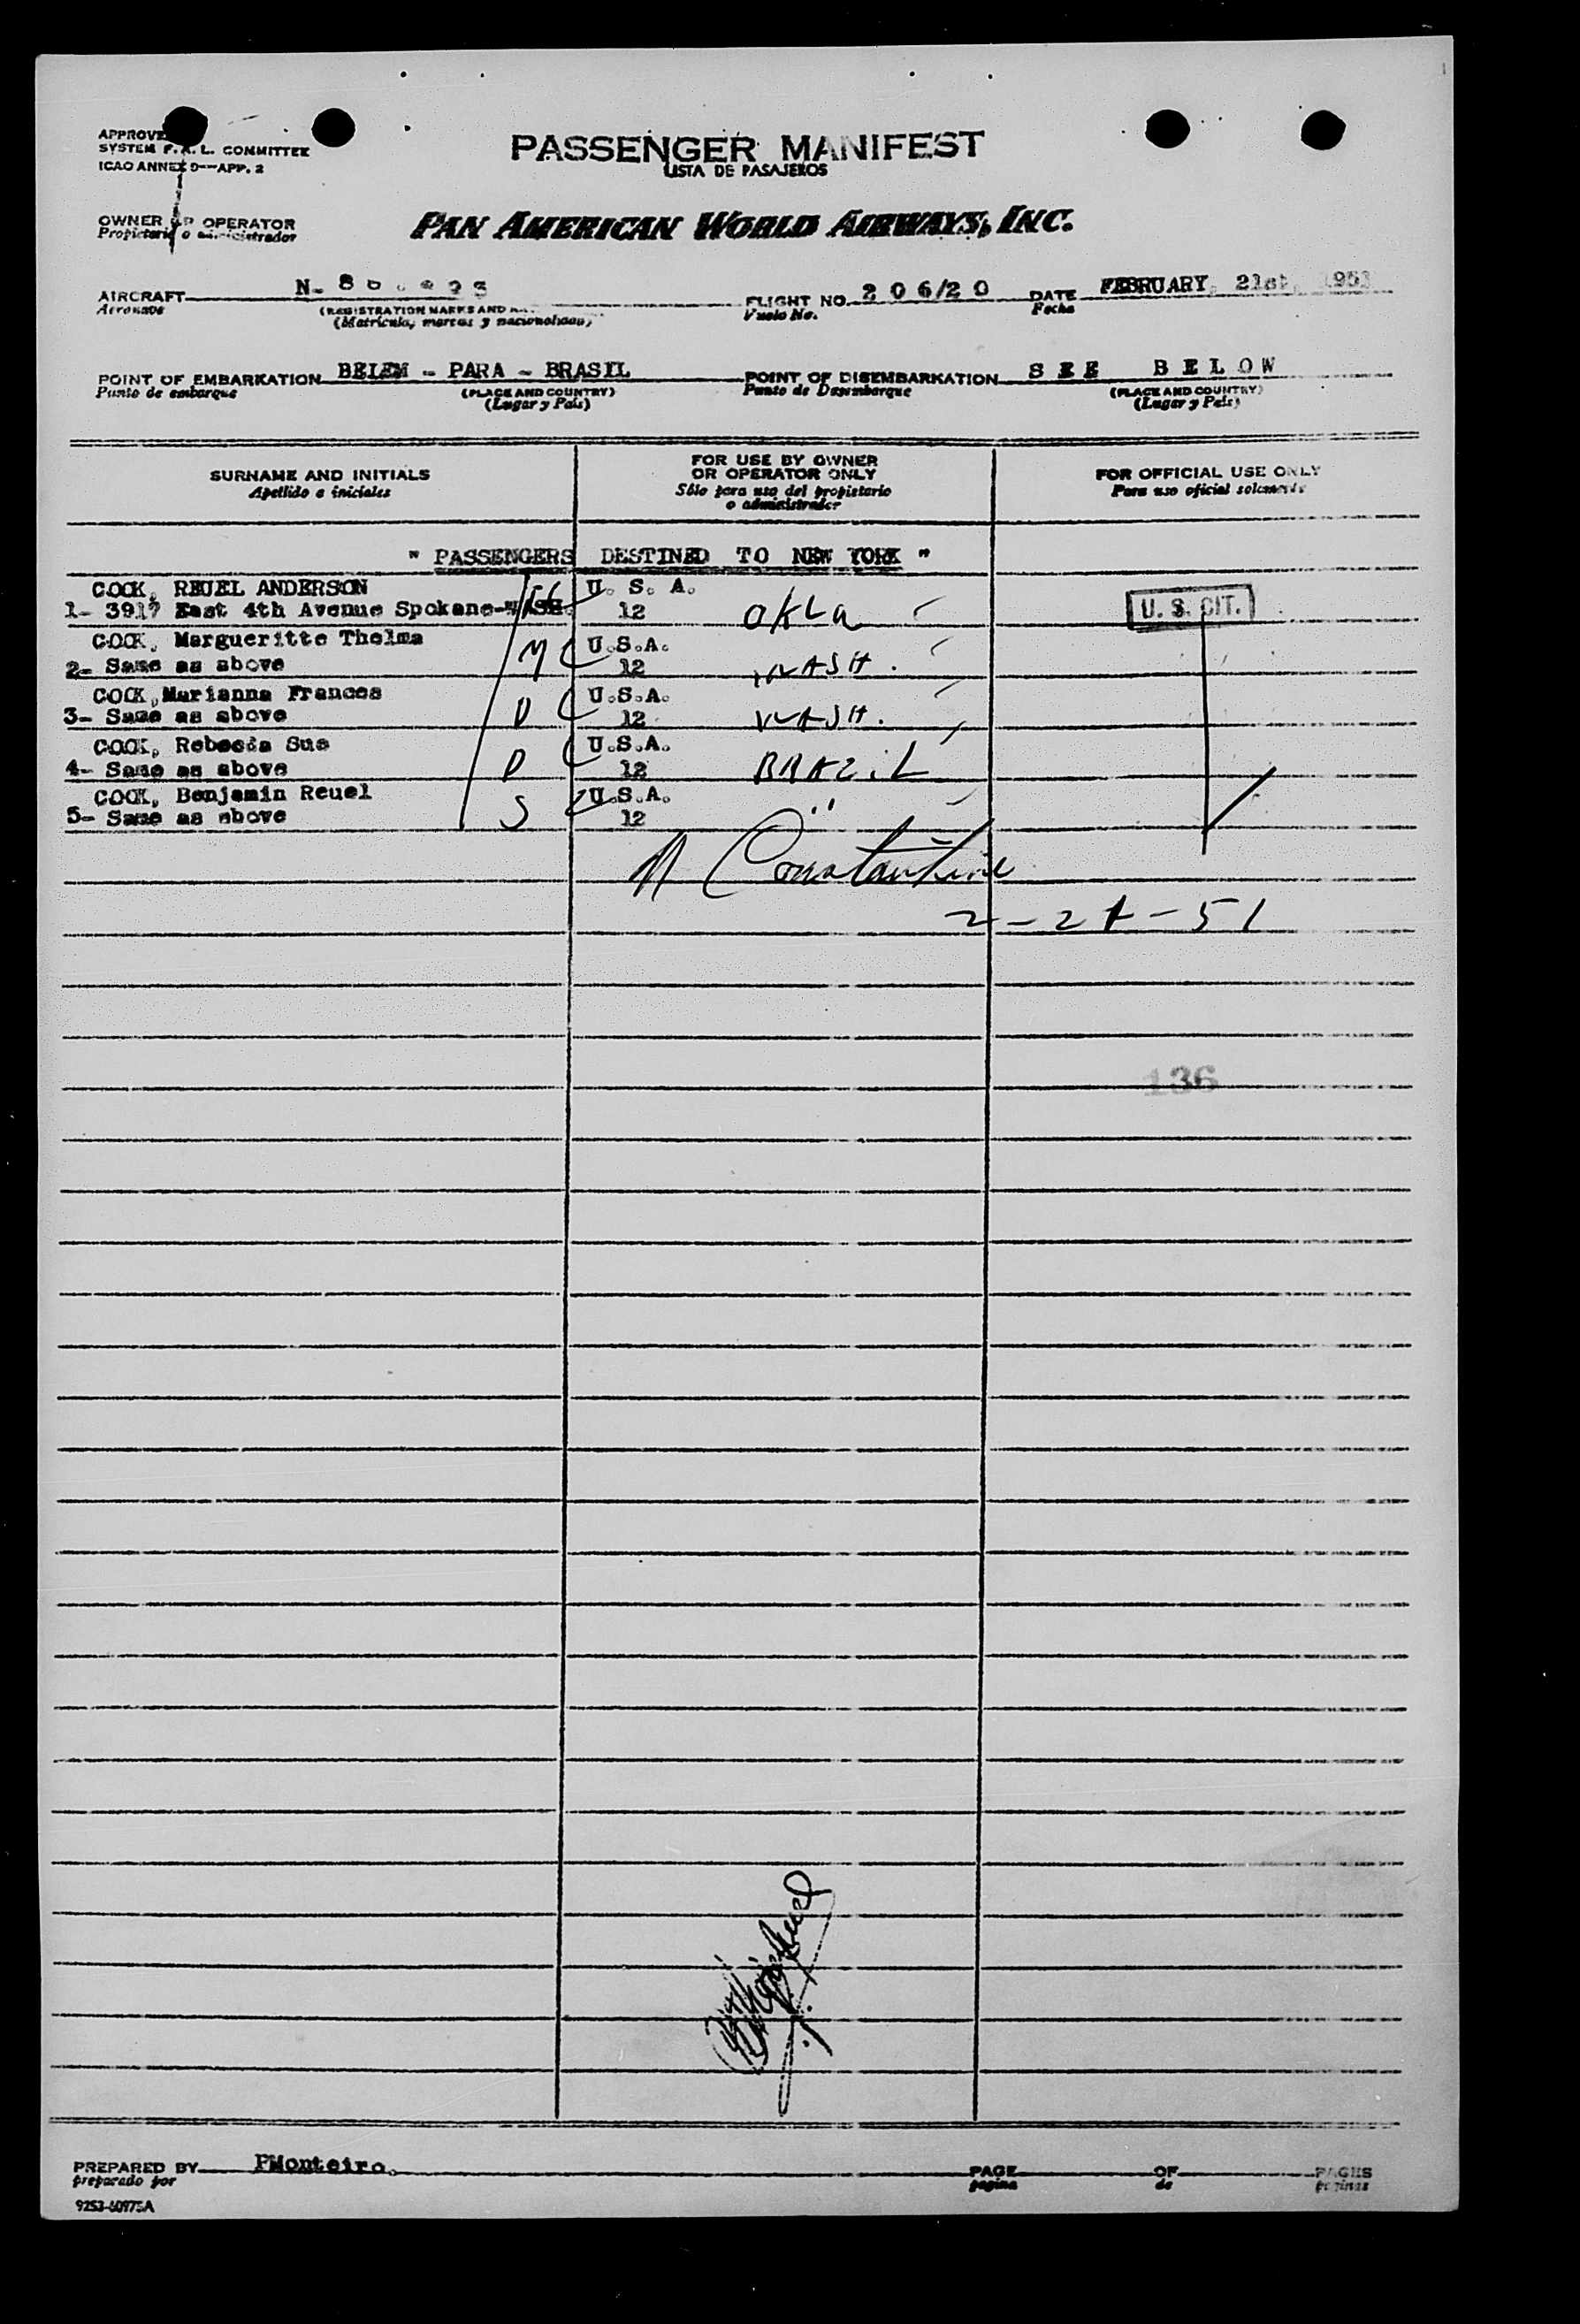 PASSENGER MANIFEST
LISTA DE PASAJEROS
APPROVE
SYSTEM F.A.L. COMMITTEE
ICAO ANNEX 9—APP. 2
OWNER OR OPERATOR
Propietario o administrador
PAN AMERICAN WORLD AIRWAYS, INC.
AIRCRAFT N-
Aeronave
(REGISTRATION MARKS AND
(Matricula, marcas y nacionalidad)
FLIGHT NO. 206/20
Vuelo No.
DATE FEBRUARY, 21st,
Fecha
POINT OF EMBARKATION BELEM - PARA - BRASIL
Punto de embarque
(PLACE AND COUNTRY)
(Lugar y País)
POINT OF DISEMBARKATION SEE BELOW
Punto de Desembarque
(PLACE AND COUNTRY)
(Lugar y País)
SURNAME AND INITIALS
Apellido e iniciales
FOR USE BY OWNER
OR OPERATOR ONLY
Sólo para uso del propietario
o administrador
FOR OFFICIAL USE ONLY
Para uso oficial solamente
" PASSENGERS DESTINED TO NEW YORK "
COOK, REUEL ANDERSON U. S. A.
1- 3917 East 4th Avenue Spokane-WASH. 12 OKLA U. S. CIT.
COOK, Margueritte Thelma U.S.A.
2- Same as above M 12 WASH.
COOK, Marianna Frances U.S.A.
3- Same as above D 12 WASH.
COOK, Rebecca Sue U.S.A.
4- Same as above D 12 BRAZIL
COOK, Benjamin Reuel U.S.A.
5- Same as above S 12 "
Constantine
2-21-51
136
PREPARED BY PMonteiro.
preparado por
PAGE OF PAGES
pagina de paginas
9253-60975A